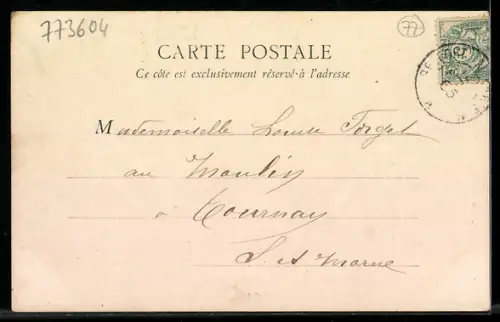 773604
77
CARTE POSTALE
Ce côté est exclusivement réservé à l'adresse
Mademoiselle Louise Forget
au Moulin
à Tournan
S. et Marne